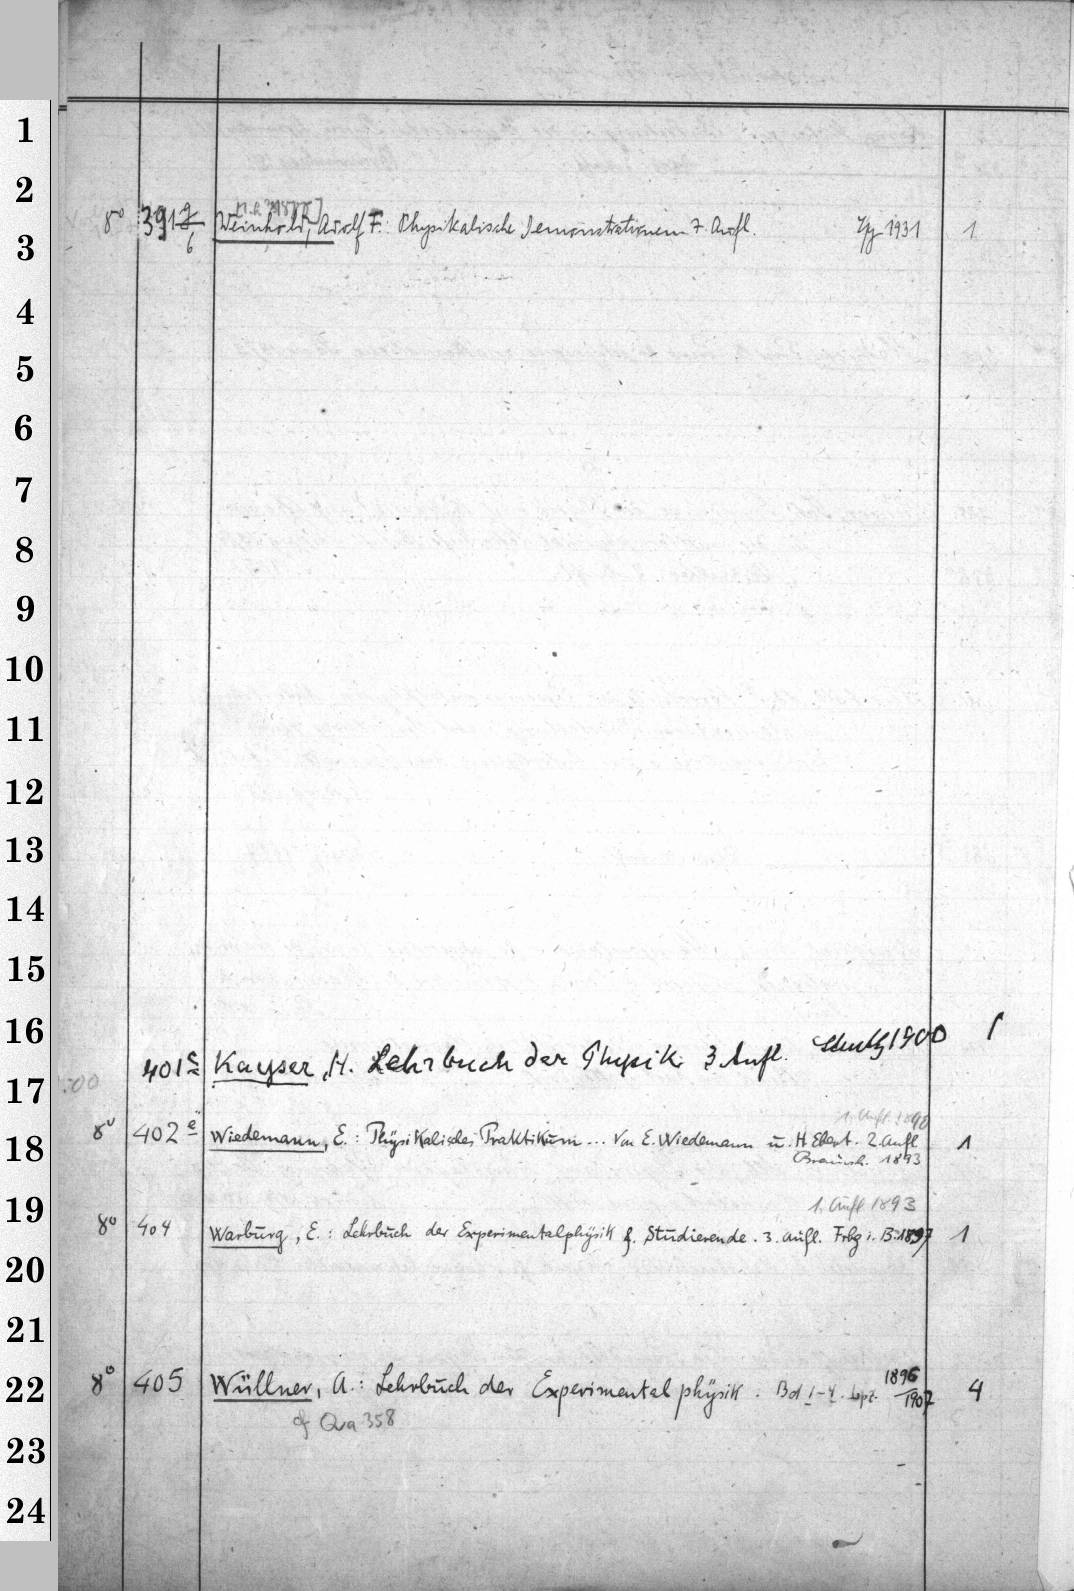 1
2
8° 391 6 Weinhold, Adolf F.: Physikalische Demonstrationen 7. Aufl. Lpz 1931 1
3
4
5
6
7
8
9
10
11
12
13
14
15
16
401 Kayser, H. Lehrbuch der Physik 3 Aufl. 1900 1
17
1. Aufl. 1890
8° 402 e Wiedemann, E.: Physikalisches Praktikum ... Von E. Wiedemann u. H. Ebert. 2. Aufl 1
18
Braunsch. 1893
19
1. Aufl. 1893
8° 404 Warburg, E.: Lehrbuch der Experimentalphysik f. Studierende. 3. Aufl. Frbg i. B. 1897 1
20
21
22
8° 405 Wüllner, A.: Lehrbuch der Experimentalphysik. Bd 1-4. Lpz. 1896/1907 4
cf Qva 358
23
24